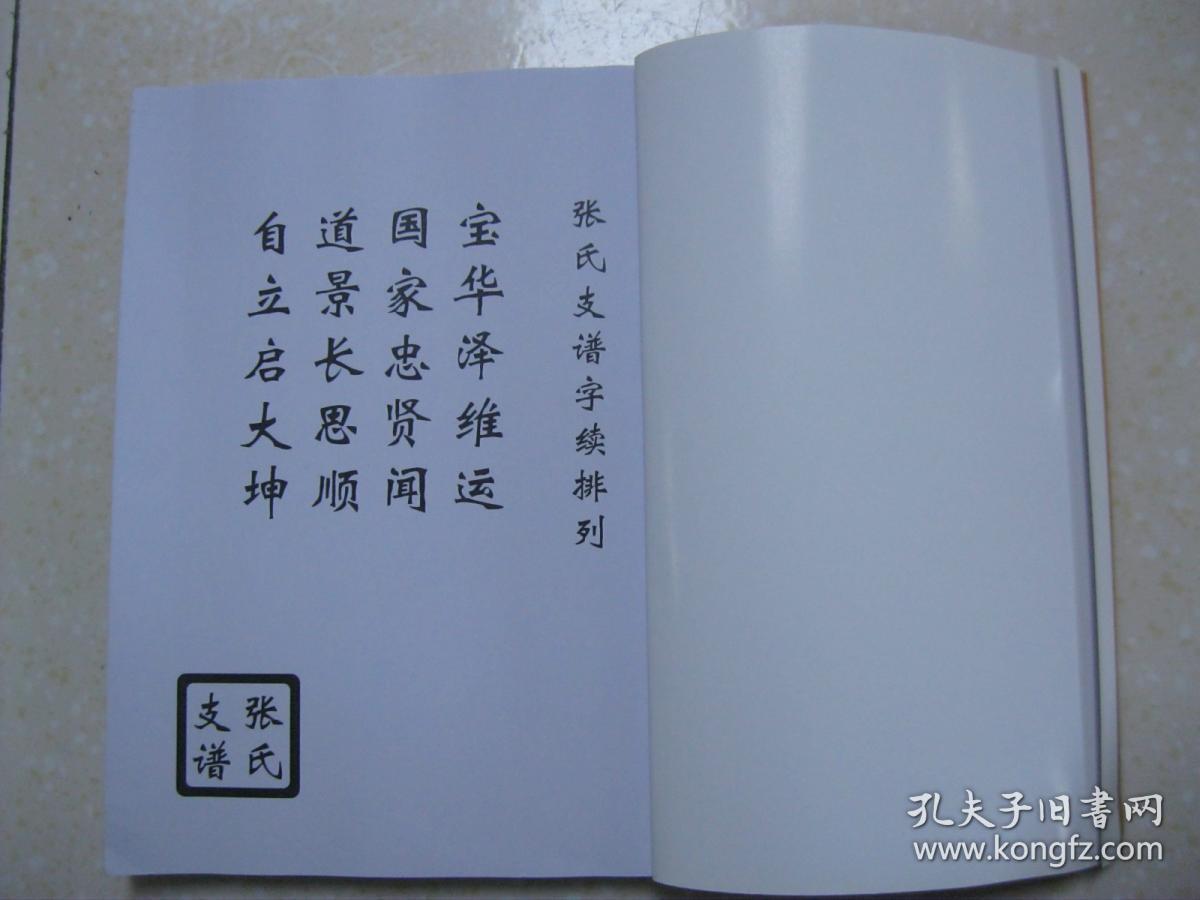 张氏支谱字续排列
宝华泽维运
国家忠贤闻
道景长思顺
自立启大坤
张氏
支谱
孔夫子旧书网
www.kongfz.com